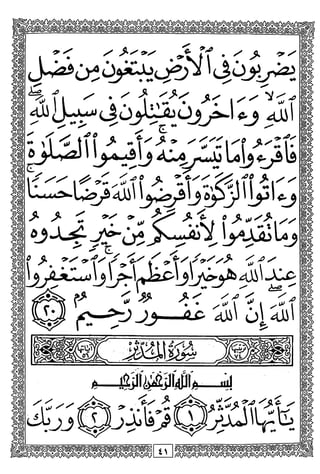 يَضْرِبُونَ فِى ٱلْأَرْضِ يَبْتَغُونَ مِن فَضْلِ
ٱللَّهِ ۙ وَءَاخَرُونَ يُقَـٰتِلُونَ فِى سَبِيلِ ٱللَّهِ ۖ
فَٱقْرَءُوا۟ مَا تَيَسَّرَ مِنْهُ ۚ وَأَقِيمُوا۟ ٱلصَّلَوٰةَ
وَءَاتُوا۟ ٱلزَّكَوٰةَ وَأَقْرِضُوا۟ ٱللَّهَ قَرْضًا حَسَنًا ۚ
وَمَا تُقَدِّمُوا۟ لِأَنفُسِكُم مِّنْ خَيْرٍ تَجِدُوهُ
عِندَ ٱللَّهِ هُوَ خَيْرًا وَأَعْظَمَ أَجْرًا ۚ وَٱسْتَغْفِرُوا۟
ٱللَّهَ ۖ إِنَّ ٱللَّهَ غَفُورٌ رَّحِيمٌۢ ٢٠
سُورَةُ المُدَّثِّرِ
بِسْمِ ٱللَّهِ ٱلرَّحْمَـٰنِ ٱلرَّحِيمِ
يَـٰٓأَيُّهَا ٱلْمُدَّثِّرُ ١ قُمْ فَأَنذِرْ ٢ وَرَبَّكَ
٤١